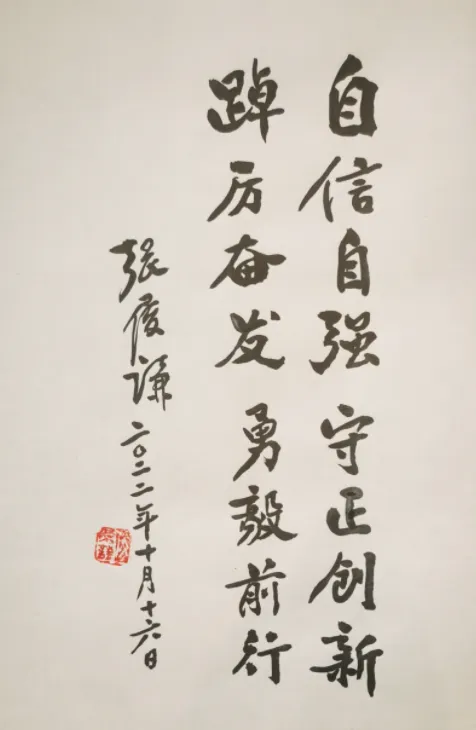 自信自强 守正创新
踔厉奋发 勇毅前行
張俊謙 二〇二二年十月十六日